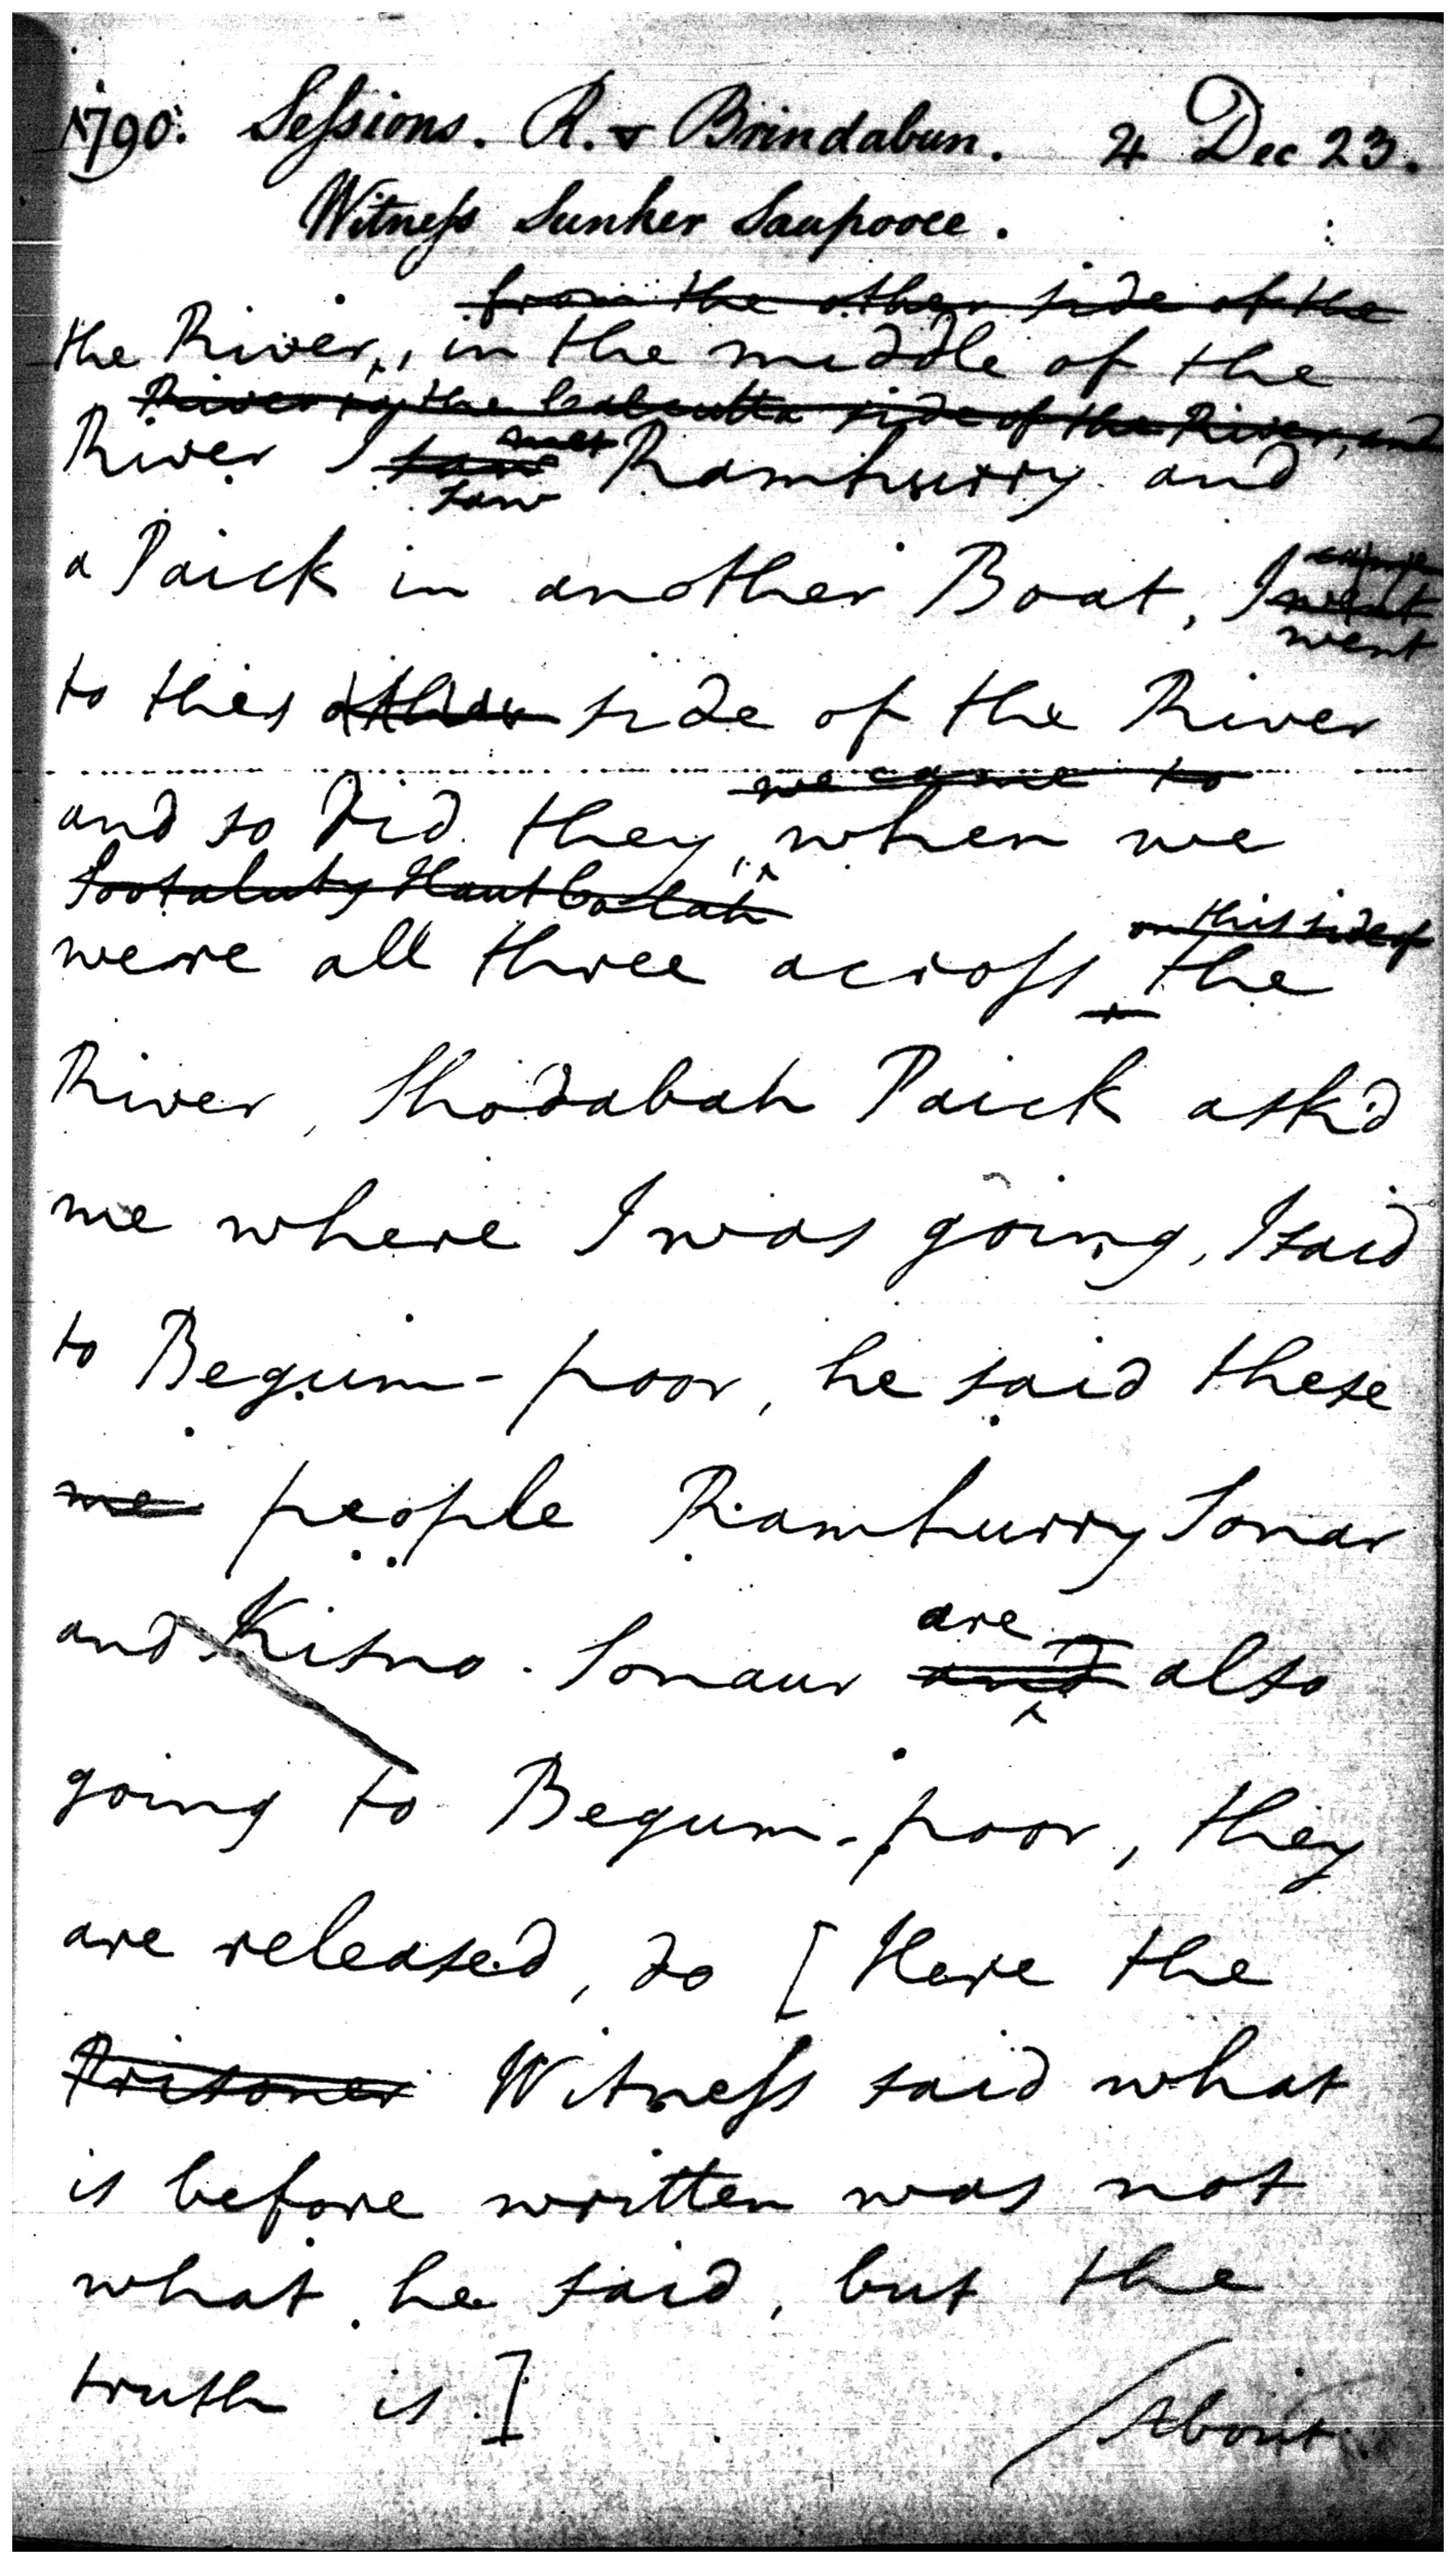 1790. Sessions. R. v Brindabun. 4 Dec 23.
Witness Sunker Saupooee.
from the other side of the
the River, in the middle of the
River to the Calcutta side of the River, and
River I saw met Ramhurry and
saw
a Paick in another Boat, I went
came
went
to this other side of the River
we came to
and so did they, when we
Sootaluty Hautkolah
on this side of
were all three across the
River, Shodabah Paick ask'd
me where I was going, I said
to Begum-poor, he said these
me people Ramhurry Sonar
are
and Kisno. Sonaur and also
going to Begum-poor, they
are released, do [Here the
Prisoner Witness said what
is before written was not
what he said, but the
truth is]
About